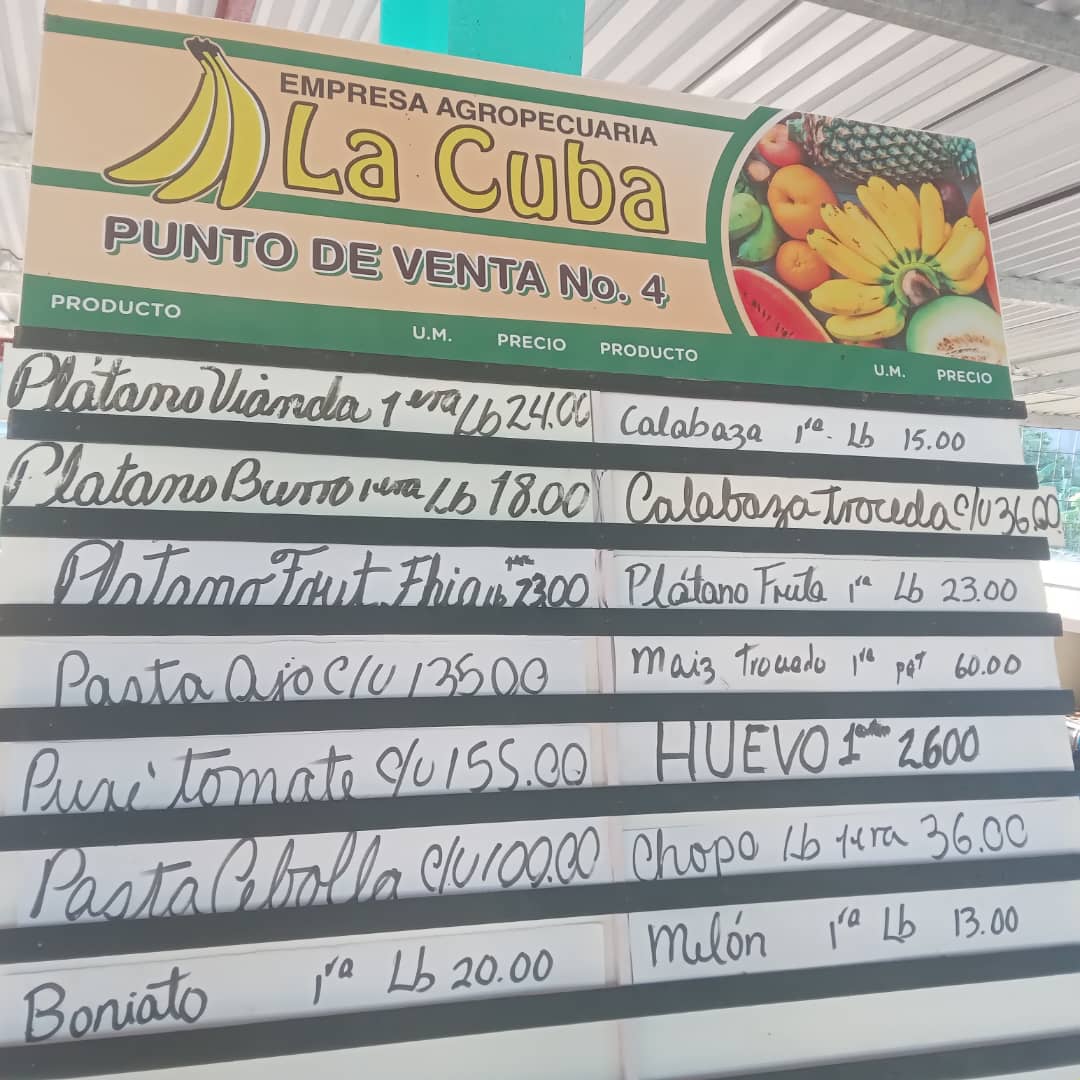 EMPRESA AGROPECUARIA
La Cuba
PUNTO DE VENTA No. 4
PRODUCTO U.M. PRECIO
Plátano Vianda 1era Lb 24.00
Platano Burro 1era Lb 18.00
Platano Frut. Fhia Lb 1era 23.00
Pasta Ajo C/U 135.00
Puré tomate C/U 155.00
Pasta Cebolla C/U 100.00
Boniato 1ra Lb 20.00
PRODUCTO U.M. PRECIO
Calabaza 1ra. Lb 15.00
Calabaza troceda C/U 36.00
Plátano Fruta 1ra Lb 23.00
Maiz Trocado 1ra pqt 60.00
HUEVO 1 2600
Chopo Lb 1era 36.00
Melón 1ra Lb 13.00